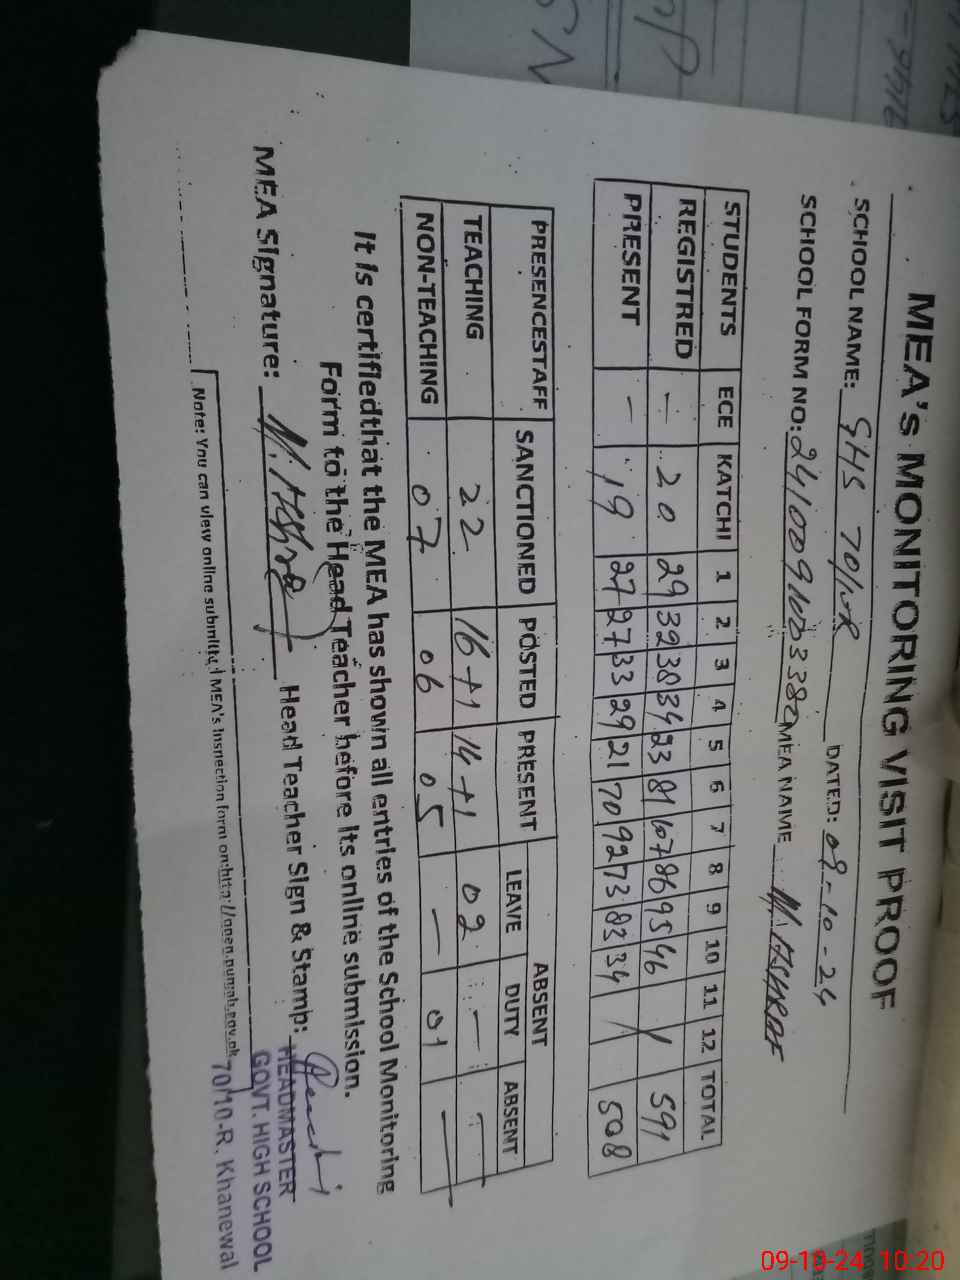 MEA'S MONITORING VISIT PROOF
SCHOOL NAME: GHS 70/10R DATED: 09-10-24
SCHOOL FORM NO: MEA NAME M. ASHRAF
STUDENTS ECE KATCHI 1 2 3 4 5 6 7 8 9 10 11 12 TOTAL
REGISTRED — 20 29 32 38 34 23 81 107 86 95 46 / 591
PRESENT — 19 27 27 33 29 21 70 92 73 83 34 508
PRESENCESTAFF SANCTIONED POSTED PRESENT ABSENT
LEAVE DUTY ABSENT
TEACHING 22 16+1 14+1 02 — —
NON-TEACHING 07 06 05 — 01 —
It is certifiedthat the MEA has shown all entries of the School Monitoring
Form to the Head Teacher before its online submission.
MEA Signature: M. Ashraf Head Teacher Sign & Stamp:
HEADMASTER
GOVT. HIGH SCHOOL
70/10-R. Khanewal
Note: You can view online submitted MEA's Inspection form on:http://open.punjab.gov.pk
09-10-24 10:20